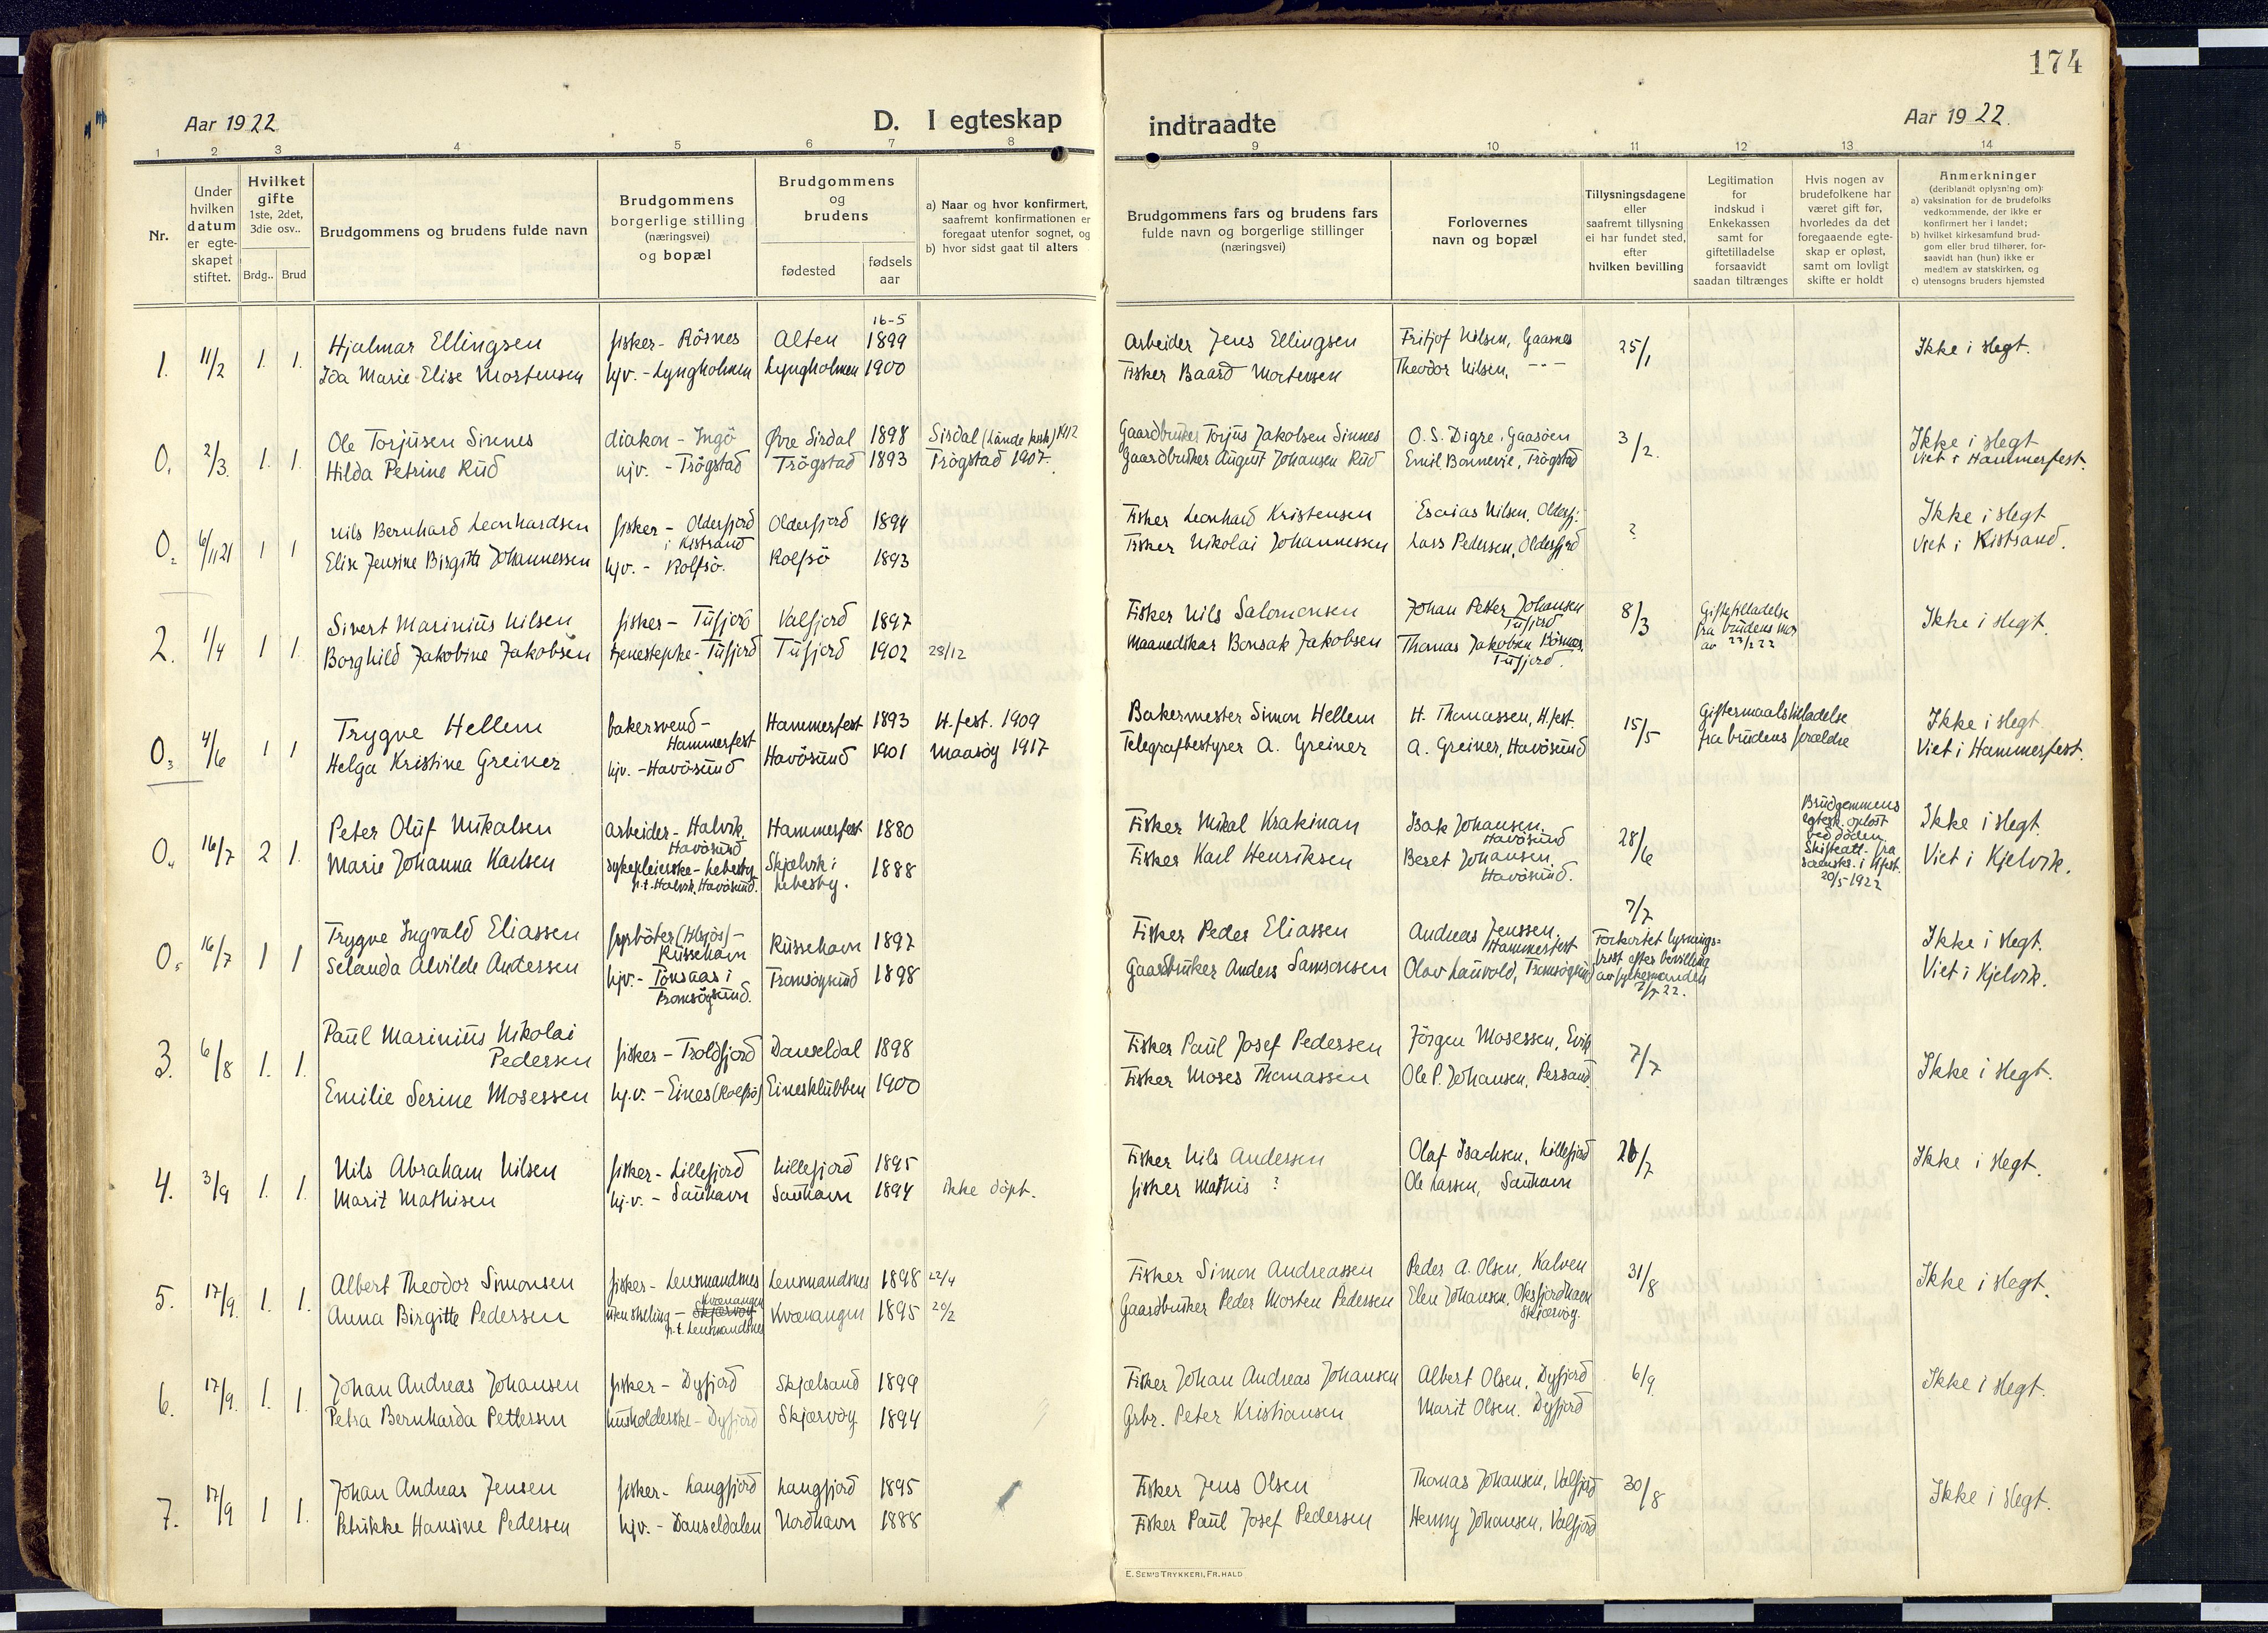 174
Aar 1922
D. I egteskap
indtraadte
Aar 1922.
1 2 3 4 5 6 7 8 9 10 11 12 13 14
Nr.
Under
hvilken
datum
er egte-
skapet
stiftet.
Hvilket
gifte
1ste, 2det,
3die osv..
Brdg.. Brud
Brudgommens og brudens fulde navn
Brudgommens
borgerlige stilling
(næringsvei)
og bopæl
Brudgommens
og
brudens
fødested
fødsels
aar
a) Naar og hvor konfirmert,
saafremt konfirmationen er
foregaat utenfor sognet, og
b) hvor sidst gaat til alters
Brudgommens fars og brudens fars
fulde navn og borgerlige stillinger
(næringsvei)
Forlovernes
navn og bopæl
Tillysningsdagene
eller
saafremt tillysning
ei har fundet sted,
efter
hvilken bevilling
Legitimation
for
indskud i
Enkekassen
samt for
giftetilladelse
forsaavidt
saadan tiltrænges
Hvis nogen av
brudefolkene har
været gift før,
hvorledes da det
foregaaende egte-
skap er opløst,
samt om lovligt
skifte er holdt
Anmerkninger
(deriblandt oplysning om):
a) vaksination for de brudefolks
vedkommende, der ikke er
konfirmert her i landet;
b) hvilket kirkesamfund brud-
gom eller brud tilhører, for-
saavidt han (hun) ikke er
medlem av statskirken, og
c) utensogns bruders hjemsted
16-5
1. 11/2 1. 1. Hjalmar Ellingsen fisker - Rösnes Alten 1899 Arbeider Jens Ellingsen Fritjof Nilsen, Gaasnes 25/1 Ikke i slegt.
Ida Marie Elise Mortensen hjv. - Lyngholmen Lyngholmen 1900 Fisker Baard Mortensen Theodor Nilsen, -"-
0. 2/3. 1. 1. Ole Torjusen Sinnes diakon - Ingö Øvre Sirdal 1898 Sirdal (Lunde kirk) 1912 Gaardbruker Torjus Jakobsen Sinnes O. S. Digre, Gaasöen 3/2. Ikke i slegt
Hilda Petrine Rud hjv. - Trögstad Trögstad 1893 Trögstad 1907. Gaardbruker August Johansen Rud Emil Bonnevie, Trögstad Viet i Hammerfest.
0. 6/11 21 1 1 Nils Bernhard Leonhardsen fisker - Olderfjord i Kistrand Olderfjord 1894 Fisker Leonhard Kristensen Esaias Nilsen, Olderfj. ? Ikke i slegt
Elise Jensine Birgitte Johannessen hjv. - Rolfsö. Rolfsö 1893 Fisker Nikolai Johannessen Lars Pedersen, Olderfjord Viet i Kistrand.
2. 1/4 1 1 Sivert Marinius Nilsen fisker - Tufjord Valfjord 1897 Fisker Nils Salomonsen Johan Peder Johansen Tufjord 8/3 Giftetilladelse Ikke i slegt.
Borghild Jakobine Jakobsen tjenestepike - Tufjord Tufjord 1902 28/12 Maanedskar Bonsak Jakobsen Thomas Jakobsen Tufjord. fra brudens mor
av 23/2 22
0. 4/6 1 1 Trygve Hellem bakersvend - Hammerfest Hammerfest 1893 H.fest. 1909 Bakermester Simon Hellem H. Thomassen, H.fest. 15/5 Giftermaalstilladelse Ikke i slegt
Helga Kristine Greiner hjv. - Havösund Havösund 1901 Maasöy 1917 Telegrafbestyrer A. Greiner A. Greiner, Havösund fra brudens forældre Viet i Hammerfest.
0. 16/7 2 1. Peter Oluf Mikalsen arbeider - Halvik, Havösund Hammerfest 1880 Fisker Mikal Krakinan Isak Johansen, Havösund 28/6 Brudgommens egtesk. opløst Ikke i slegt.
Marie Johanna Karlsen sykepleierske - Lebesby p.t. Halvik, Havösund. Skjælvik i Lebesby. 1888 Fisker Karl Henriksen Beret Johansen, Havösund. ved döden. Skifteatt. fra sorensk. i Hfest. 20/5 1922 Viet i Kjelvik.
0. 16/7 1 1 Trygve Ingvald Eliassen fyrböter - Russehavn Russehavn 1892 Fisker Peder Eliassen Andreas Jenssen, Hammerfest 7/7 Forkortet lysnings- Ikke i slegt.
Selanda Alvilde Andersen hjv. - Tonsaas i Tromsöysund. Tromsöysund 1898 Gaardbruker Anders Samsonsen Olav Lauvold, Tromsöysund frist efter bevilling av fylkesmanden 7/7 22. Viet i Kjelvik.
3. 6/8 1. 1. Paul Marinius Nikolai
Pedersen fisker - Troldfjord Danseldal 1898 Fisker Paul Josef Pedersen Jörgen Mosessen, 7/7 Ikke i slegt.
Emilie Serine Mosessen hj.v. - Eines (Rolfsö) Einesklubben 1900 Fisker Moses Thomassen Ole P. Johansen,
4. 3/9 1. 1. Nils Abraham Nilsen fisker - Lillefjord Lillefjord 1895 Fisker Nils Andersen Olaf Isachsen, Lillefjord 26/7 Ikke i slegt.
Marit Mathisen hj.v. - Sauhavn Sauhavn 1894 ikke döpt. fisker Mathis ? Ole Larsen, Sauhavn
5. 17/9. 1. 1. Albert Theodor Simonsen fisker - Lensmandsnes Lensmandsnes 1898 22/4 Fisker Simon Andreassen Peder A. Olsen, Kalven 31/8 Ikke i slegt.
Anna Birgitte Pedersen uten stilling - Skjærvöy Kvænangen p.t. Lensmandsnes Kvænangen 1895 20/2 Gaardbruker Peder Morten Pedersen Elen Johansen, Skjærvöy.
6. 17/9. 1. 1. Johan Andreas Johansen fisker - Dyfjord Skjelsand 1899 Fisker Johan Andreas Johansen Albert Olsen, Dyfjord 6/9. Ikke i slegt.
Petra Bernharda Pettersen husholderske - Dyfjord Skjærvöy 1894 Grbr. Peter Kristiansen Marit Olsen. Dyfjord
7. 17/9 1 1. Johan Andreas Jensen fisker - Langfjord Langfjord 1895 Fisker Jens Olsen Thomas Johansen, Valfjord 30/8 Ikke i slegt.
Petrikke Hansine Pedersen hjv. - Danseldalen Nordhavn 1888 Fisker Paul Josef Pedersen Henny Johansen, Valfjord
E. SEM'S TRYKKERI, FR.HALD